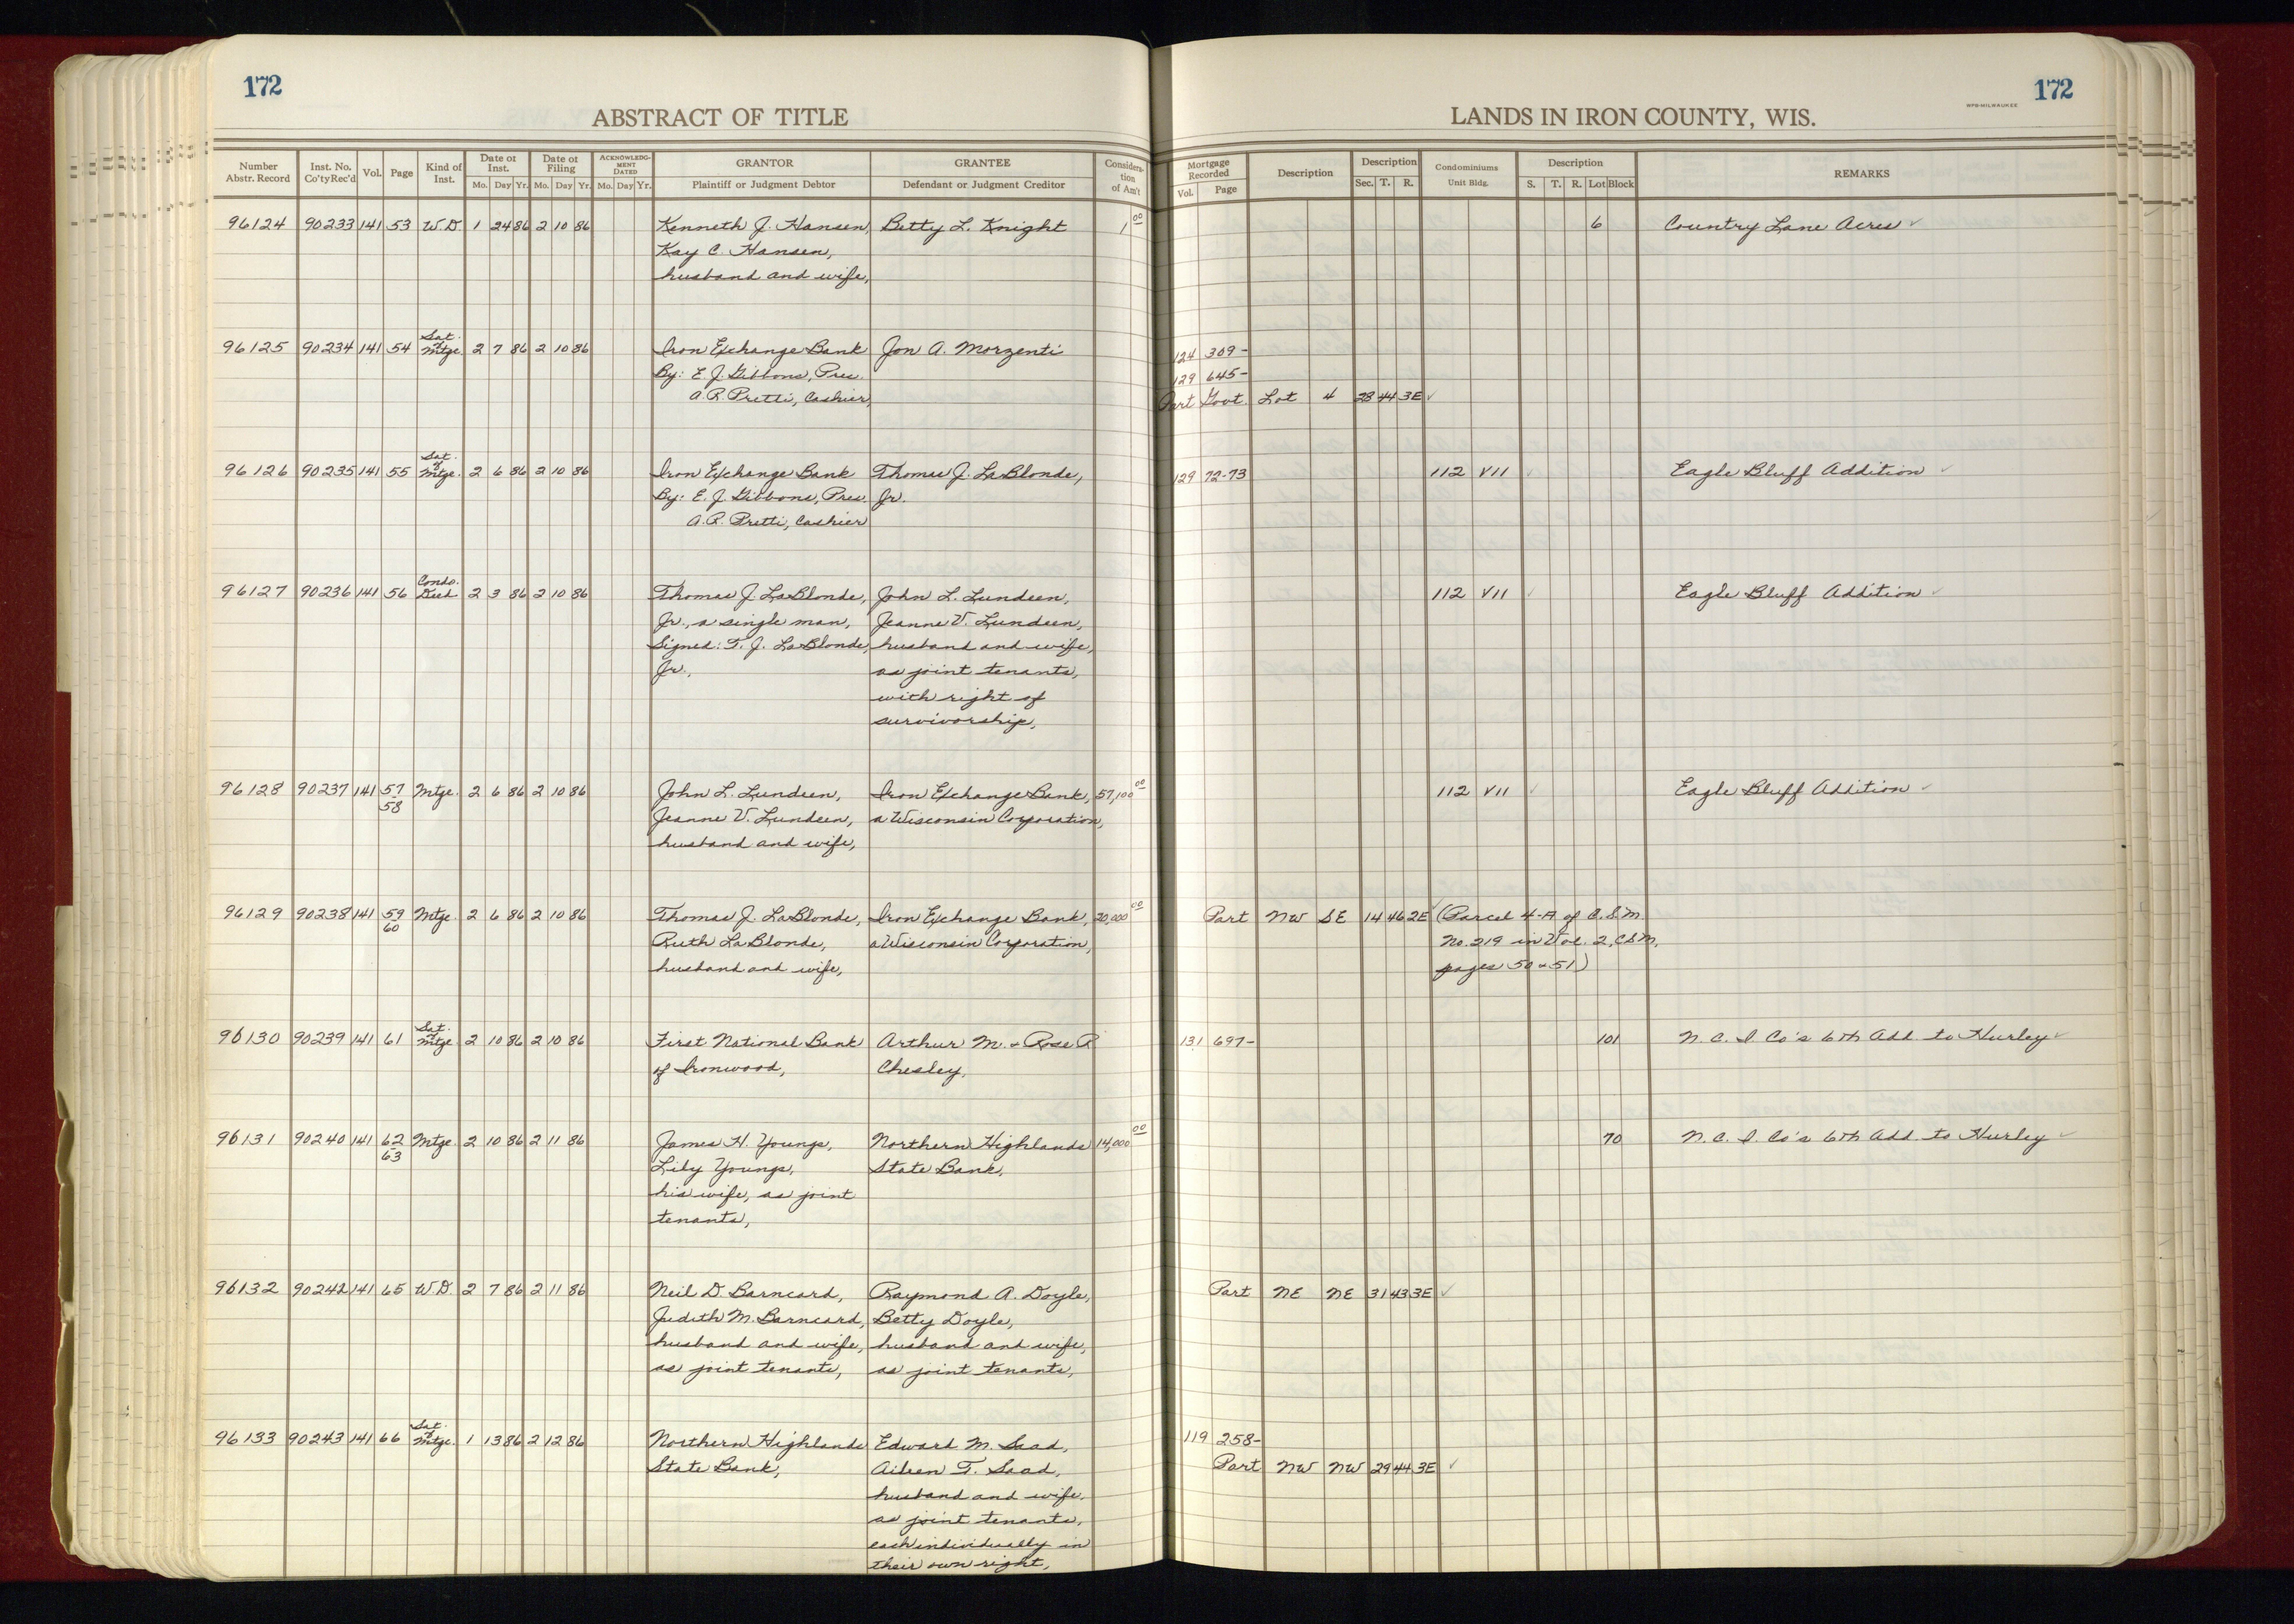 172
172
WPB-MILWAUKEE
ABSTRACT OF TITLE
LANDS IN IRON COUNTY, WIS.
Number Abstr. Record Inst. No. Co'ty Rec'd Vol. Page Kind of Inst. Date of Inst. Mo. Day Yr. Date of Filing Mo. Day Yr. ACKNOWLEDGMENT DATED Mo. Day Yr. GRANTOR Plaintiff or Judgment Debtor GRANTEE Defendant or Judgment Creditor Consideration of Am't Mortgage Recorded Vol. Page Description Description Sec. T. R. Condominiums Unit Bldg. Description S. T. R. Lot Block REMARKS
96124 90233 141 53 W.D. 1 24 86 2 10 86 Kenneth J. Hansen, Betty L. Knight 1 00 6 Country Lane Acres ✓
Kay C. Hansen,
husband and wife,
96125 90234 141 54 Sat. of Mtge. 2 7 86 2 10 86 Iron Exchange Bank Jon A. Morzenti 124 309-
By: E. J. Gibbons, Pres. 129 645-
A. R. Pretti, Cashier, Part Govt. Lot 4 28 44 3E ✓
96126 90235 141 55 Sat. of Mtge. 2 6 86 2 10 86 Iron Exchange Bank Thomas J. LaBlonde, 129 72-73 112 VII ✓ Eagle Bluff Addition ✓
By: E. J. Gibbons, Pres. Jr.
A. R. Pretti, Cashier
96127 90236 141 56 Condo. Deed 2 3 86 2 10 86 Thomas J. LaBlonde, John L. Lundeen, 112 VII ✓ Eagle Bluff Addition ✓
Jr., a single man, Jeanne V. Lundeen,
Signed: T. J. LaBlonde, husband and wife,
Jr., as joint tenants,
with right of
survivorship,
96128 90237 141 57 58 Mtge. 2 6 86 2 10 86 John L. Lundeen, Iron Exchange Bank, 57,100 00 112 VII ✓ Eagle Bluff Addition ✓
Jeanne V. Lundeen, a Wisconsin Corporation,
husband and wife,
96129 90238 141 59 60 Mtge. 2 6 86 2 10 86 Thomas J. LaBlonde, Iron Exchange Bank, 20,000 00 Part NW SE 14 46 2E ✓ (Parcel 4-A of C.S.M.
Ruth LaBlonde, a Wisconsin Corporation, No. 219 in Vol. 2, CSM,
husband and wife, pages 50 & 51)
96130 90239 141 61 Sat. of Mtge. 2 10 86 2 10 86 First National Bank Arthur M. & Rose R. 131 697- 101 N. C. I. Co's 6th Add. to Hurley ✓
of Ironwood, Chesley,
96131 90240 141 62 63 Mtge. 2 10 86 2 11 86 James H. Youngs, Northern Highlands 14,000 00 70 N. C. I. Co's 6th Add. to Hurley ✓
Lily Youngs, State Bank,
his wife, as joint
tenants,
96132 90242 141 65 W.D. 2 7 86 2 11 86 Neil D. Barncard, Raymond A. Doyle, Part NE NE 31 43 3E ✓
Judith M. Barncard, Betty Doyle,
husband and wife, husband and wife,
as joint tenants, as joint tenants,
96133 90243 141 66 Sat. of Mtge. 1 13 86 2 12 86 Northern Highlands Edward M. Saad, 119 258-
State Bank, Aileen T. Saad, Part NW NW 29 44 3E ✓
husband and wife,
as joint tenants,
each individually in
their own right,